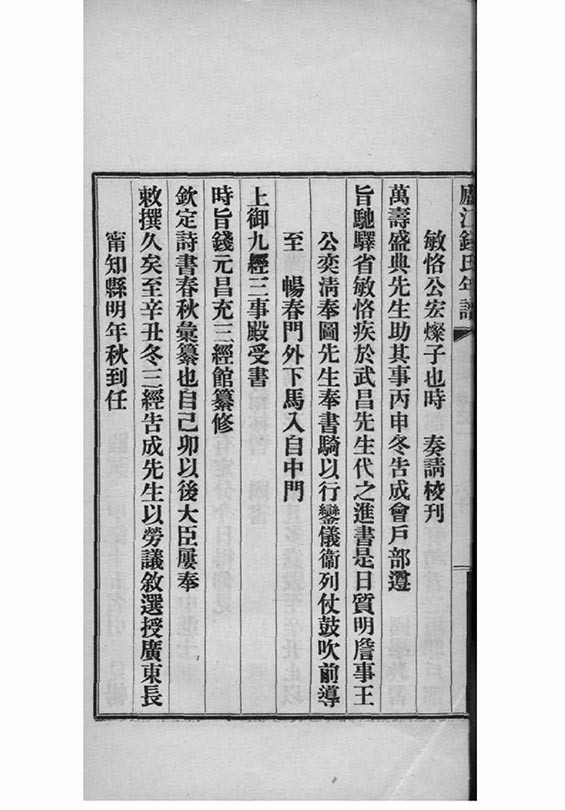 廬江錢氏年譜
敏恪公宏燦子也時　奏請校刊
萬壽盛典先生助其事丙申冬告成會戶部遵
旨馳驛省敏恪疾於武昌先生代之進書是日質明詹事王
公奕清奉圖先生奉書騎以行鑾儀衞列仗鼓吹前導
至　暢春門外下馬入自中門
上御九經三事殿受書
時旨錢元昌充三經館纂修
欽定詩書春秋彙纂也自己卯以後大臣屢奉
敕撰久矣至辛丑冬三經告成先生以勞議敘選授廣東長
甯知縣明年秋到任